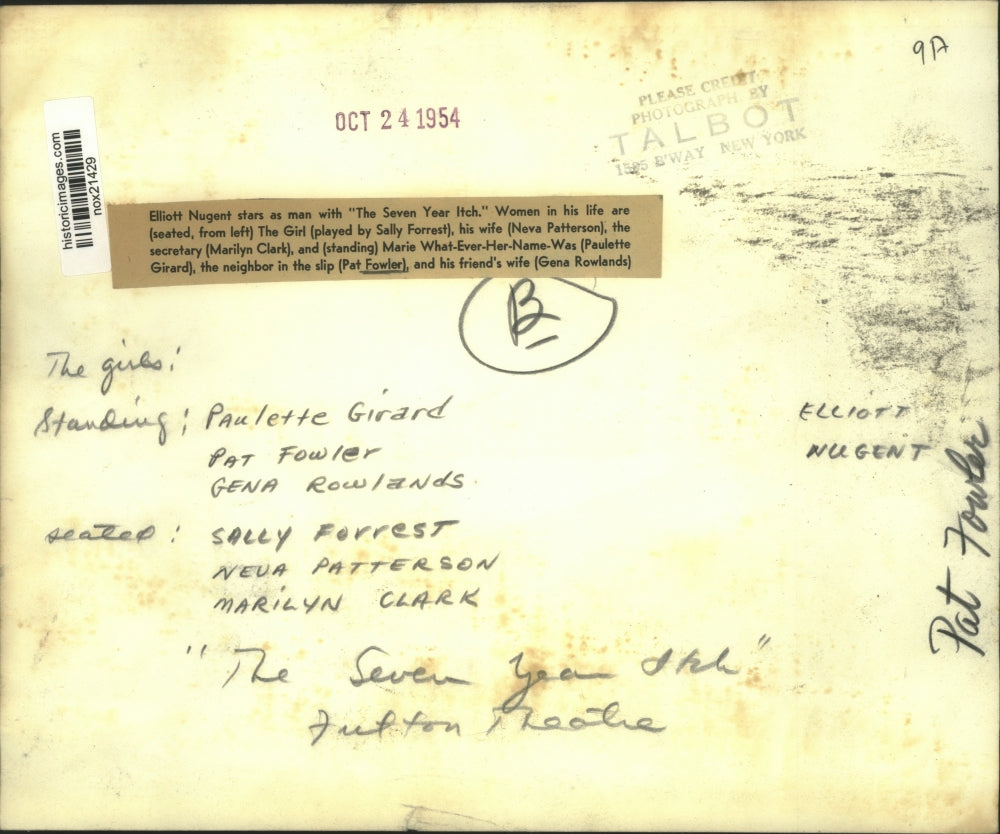 9A
OCT 24 1954
PLEASE CREDIT
PHOTOGRAPH BY
TALBOT
1595 B'WAY NEW YORK
historicimages.com
nox21429
Elliott Nugent stars as man with "The Seven Year Itch." Women in his life are
(seated, from left) The Girl (played by Sally Forrest), his wife (Neva Patterson), the
secretary (Marilyn Clark), and (standing) Marie What-Ever-Her-Name-Was (Paulette
Girard), the neighbor in the slip (Pat Fowler), and his friend's wife (Gena Rowlands)
B
The girls:
Standing: Paulette Girard
PAT Fowler
GENA Rowlands
seated: SALLY Forrest
NEVA PATTERSON
MARILYN CLARK
ELLIOTT
NUGENT
Pat Fowler
"The Seven Year Itch"
Fulton Theatre